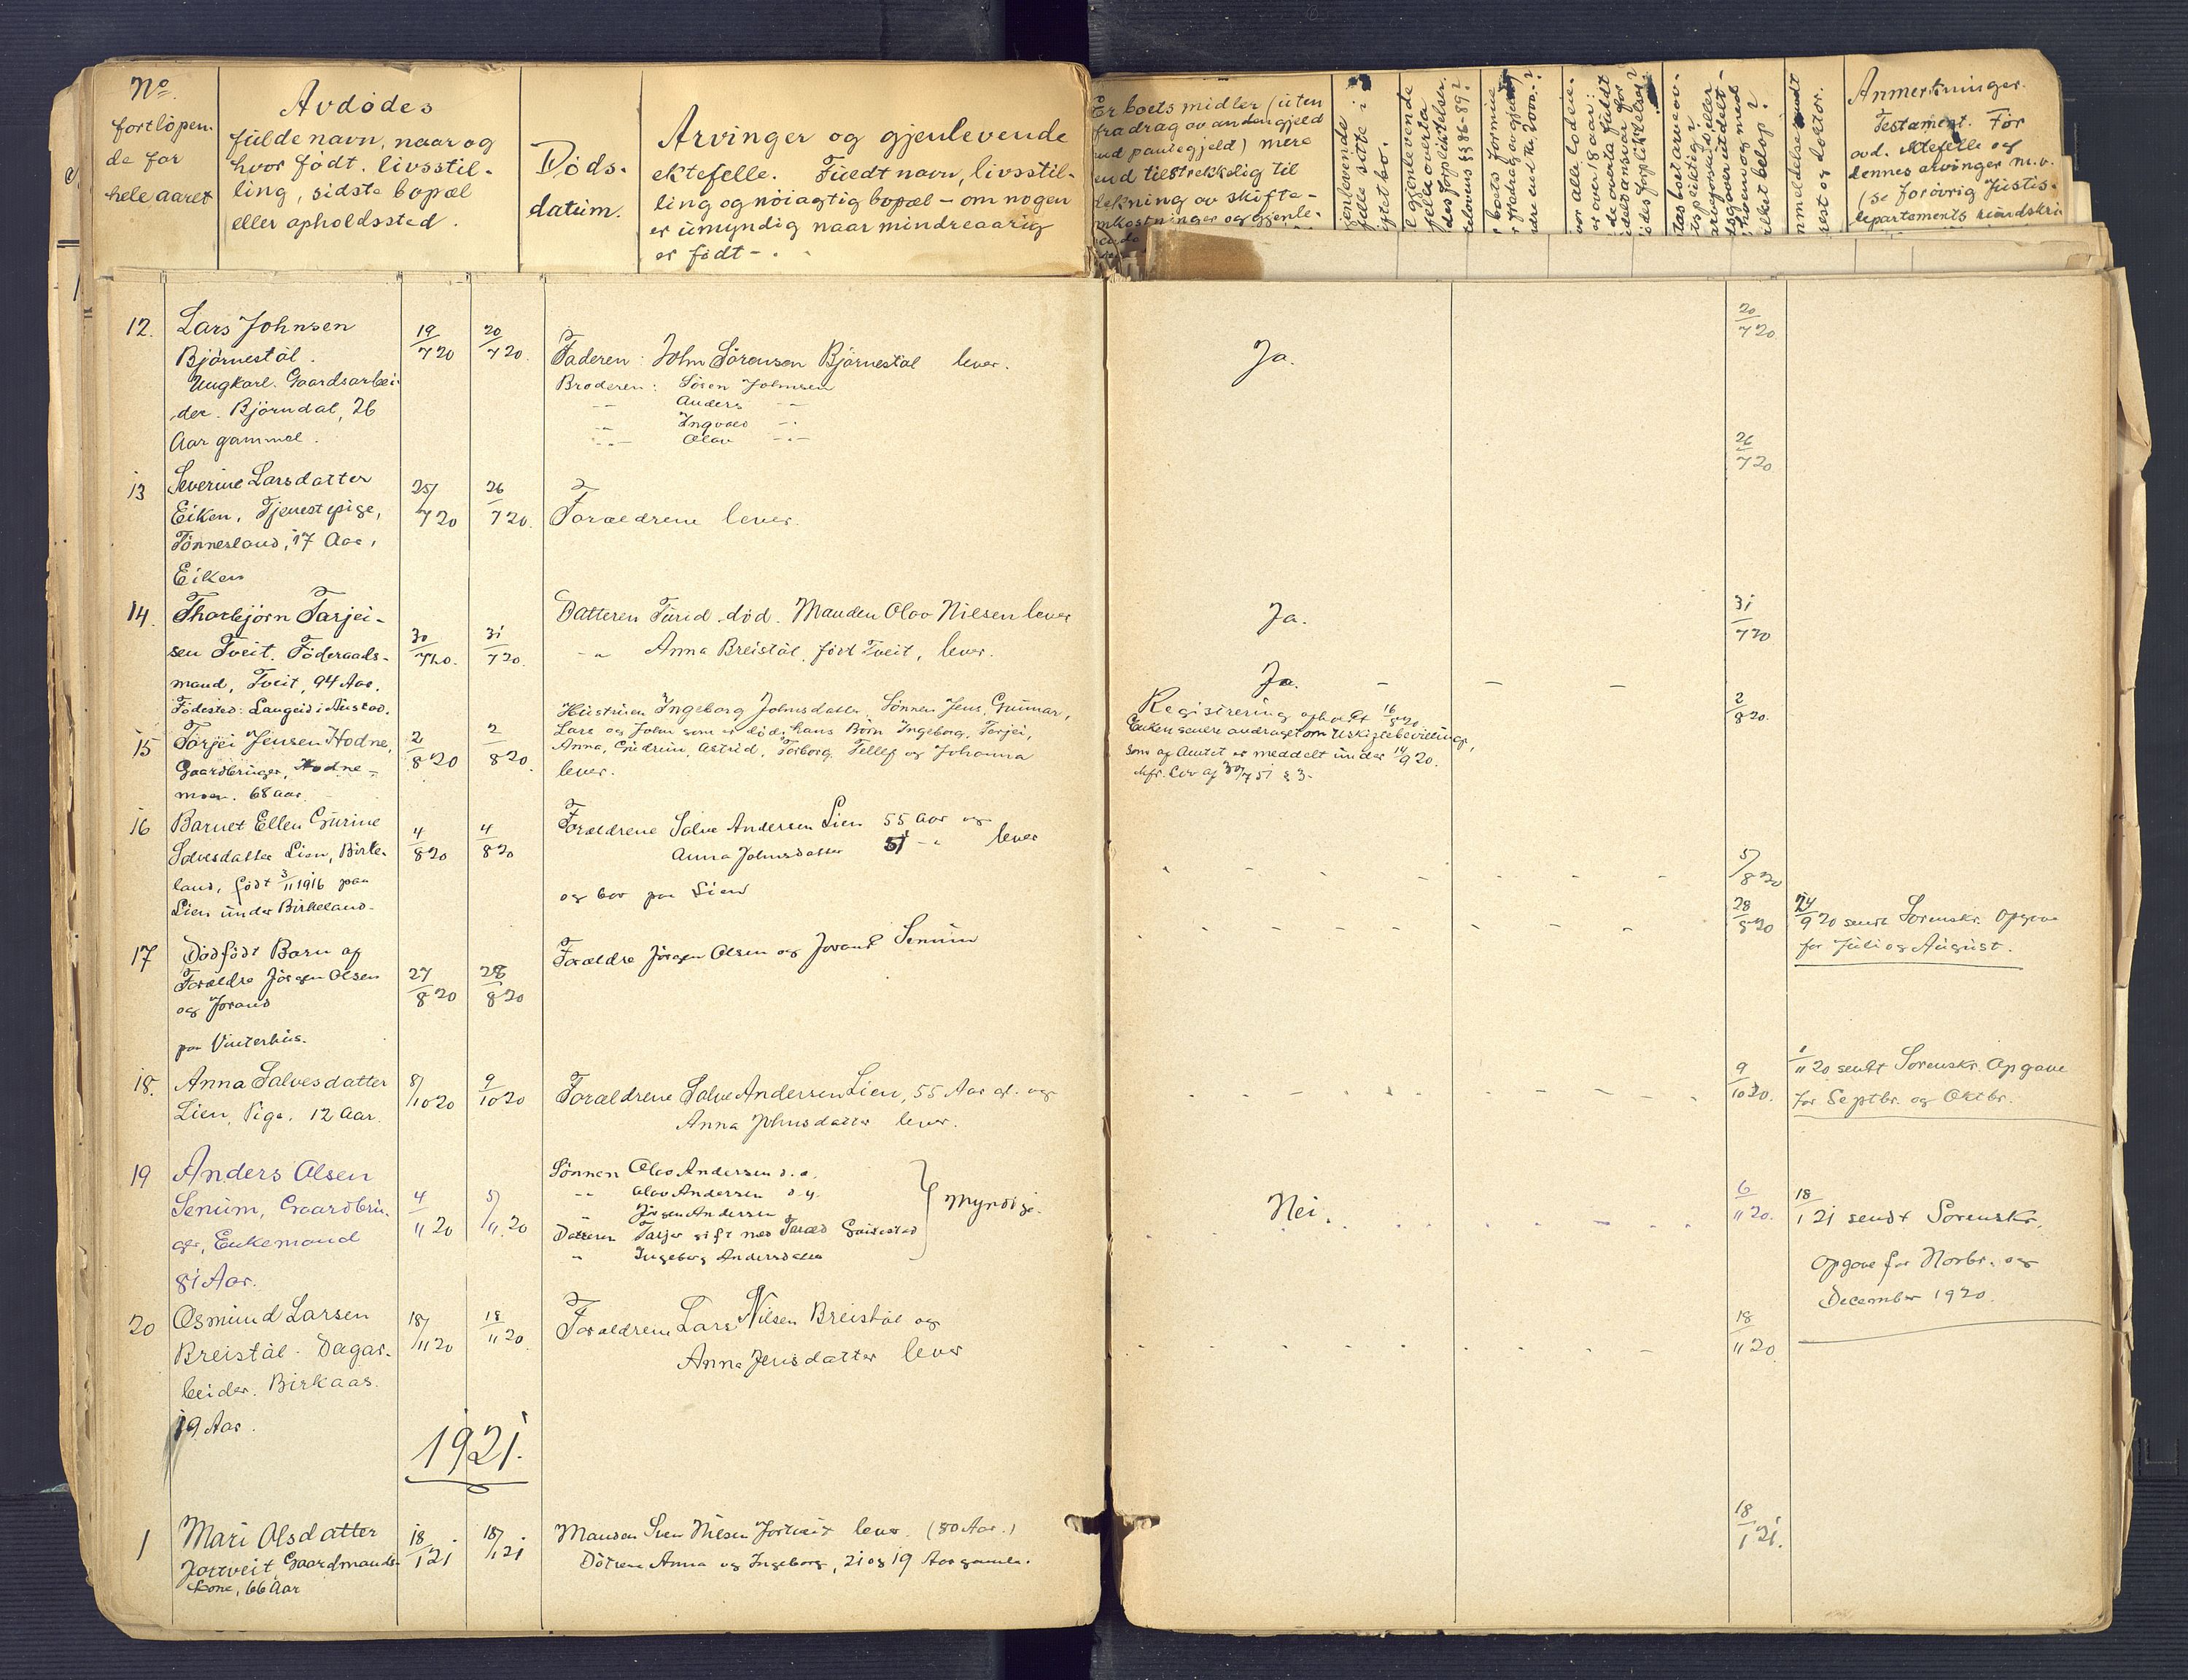 No.
fortløpen-
de for
hele aaret
Avdødes
fulde navn, naar og
hvor født. livsstil-
ling, sidste bopæl
eller opholdssted.
Døds-
datum.
Arvinger og gjenlevende
ektefelle. Fuldt navn, livsstil-
ling og nøiagtig bopæl – om nogen
er umyndig naar mindreaarig
er født –
Er boets midler (uten
fradrag av anden gjeld
end pantegjeld) mere
end tilstrekkelig til
dekning av skifte-
omkostninger og gjenle-
Anmerkninger.
Testament. For
avd. ektefelle og
dennes arvinger m.v.
(se forøvrig Justis-
departements rundskri
12. Lars Johnsen
Bjørnestøl.
Ungkarl. Gaardsarbei-
der. Bjørndal, 26
Aar gammel.
19/7 20
20/7 20.
Faderen: John Sørensen Bjørnestøl lever.
Broderen: Søren Johnsen
-"- Anders -"-
-"- Ingvald -"-
-"- Olav -"-
Ja.
20/7 20
13 Severine Larsdatter
Eiken, Tjenestepige,
Tønnesland, 17 Aar,
Eiken
25/7 20
26/7 20.
Forældrene lever.
26/7 20
14. Thorbjørn Tarjei-
sen Tveit. Føderaads-
mand, Tveit, 94 Aar.
Fødested: Langeid i Austad.
30/7 20.
31/7 20.
Datteren Turid død. Manden Olav Nilsen lever
-"- Anna Breistøl, født Tveit, lever.
Ja.
31/7 20
15 Torjei Jensen Hodne,
Gaardbruger, Hodne-
moen. 68 aar.
2/8 20
2/8 20.
Hustruen Ingeborg Johnsdatter, Sønnen Jens, Gunnar,
Lars og John som er død, hans Børn Ingeborg, Tarjei,
Anna, Gudrun, Astrid, Torborg, Tellef og Johanna
lever.
Ja. – – –
Registrering ophold 16/8 20.
Enken senere andraget om Uskiftebevilling,
som af Amtet er meddelt under 14/9 20.
Mfr. lov af 30/7 51 § 3.
2/8 20.
16 Barnet Ellen Gurine
Solvesdatter Lien, Birke-
land, født 3/11 1916 paa
Lien under Birkeland.
4/8 20
4/8 20
Forældrene Salve Andersen Lien 55 Aar og
Anna Johnsdatter 51 -"- lever
og bor paa Lien
5/8 20
17 Dødfødt Barn af
Forældre Jørgen Olsen
og Jorand
paa Vinterhus.
27/8 20
28/8 20
Forældre Jørgen Olsen og Jorand Senum
28/8 20
24/9 20 sendt Sorenskr. Opgave
for Juli og August.
18. Anna Salvesdatter
Lien, Pige, 12 Aar.
8/10 20
9/10 20
Forældrene Salve Andersen Lien, 55 Aar gl. og
Anna Johnsdatter lever.
9/10 20.
1/11 20 sendt Sorenskr. Opgave
for Septbr. og Oktbr.
19 Anders Olsen
Senum, Gaardbru-
ger, Enkemand
81 Aar.
4/11 20
5/11 20
Sønnen Olav Andersen d.e.
-"- Olav Andersen d.y.
" Jørgen Andersen
Datteren Tarjer gift med Tarald
" Ingeborg Andersdatter
Myndige.
Nei.
6/11 20.
18/1 21 sendt Sorenskr.
Opgave for Novbr. og
December 1920.
20 Osmund Larsen
Breistøl. Dagar-
beider. Birkaas.
19 Aar.
18/11 20
18/11 20
Forældrene Lars Nilsen Breistøl og
Anna Jensdatter lever
18/11 20.
1921.
1 Mari Olsdatter
Jortveit, Gaardmands-
kone, 66 Aar
18/1 21
18/1 21
Manden Sven Nilsen Jortveit lever. (80 Aar.)
Døtrene Anna og Ingeborg, 21 og 19 Aar gamle.
18/1 21.